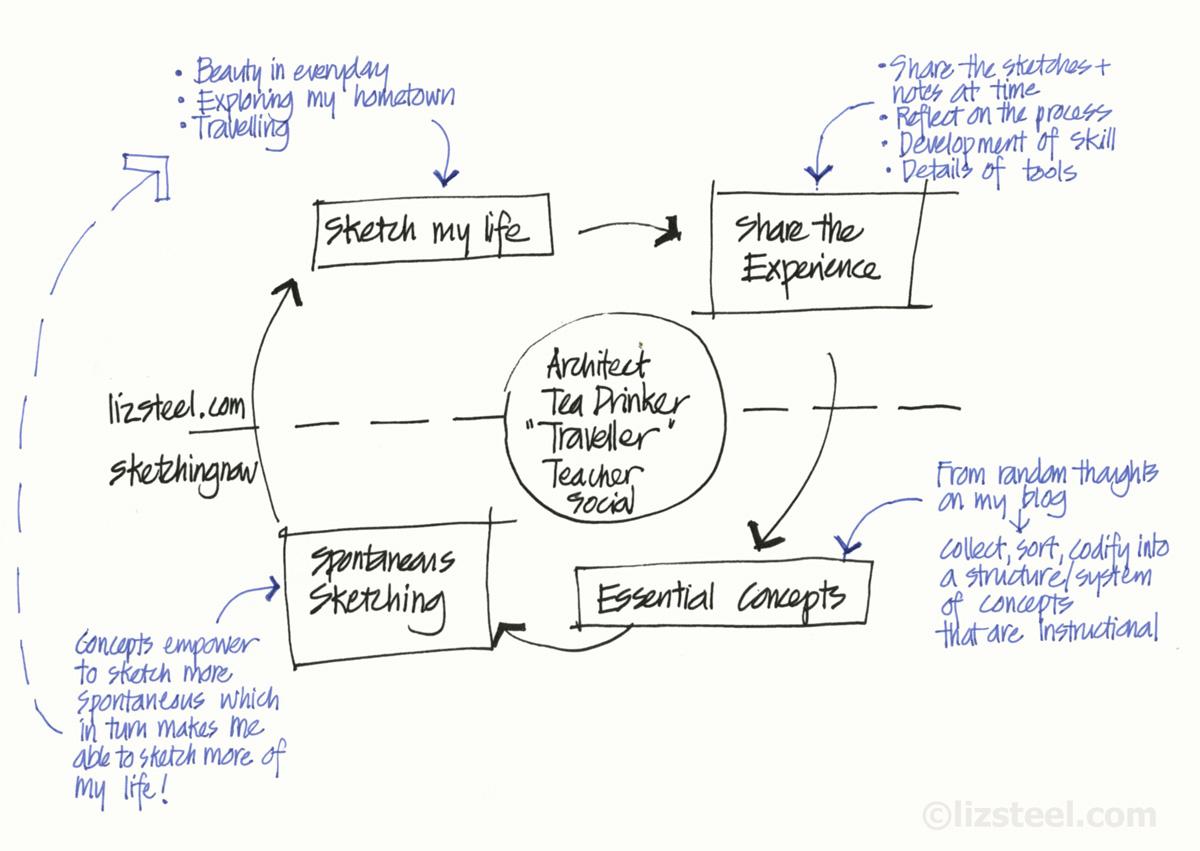 • Beauty in everyday
• Exploring my hometown
• Travelling
• Share the sketches +
notes at time
• Reflect on the process
• Development of skill
• Details of tools
Sketch my life
Share the
Experience
Architect
Tea Drinker
"Traveller"
Teacher
Social
lizsteel.com
sketchingnow
From random thoughts
on my blog
collect, sort, codify into
a structure/system
of concepts
that are instructional
Essential Concepts
Spontaneous
Sketching
Concepts empower
to sketch more
spontaneous which
in turn makes me
able to sketch more of
my life!
©lizsteel.com